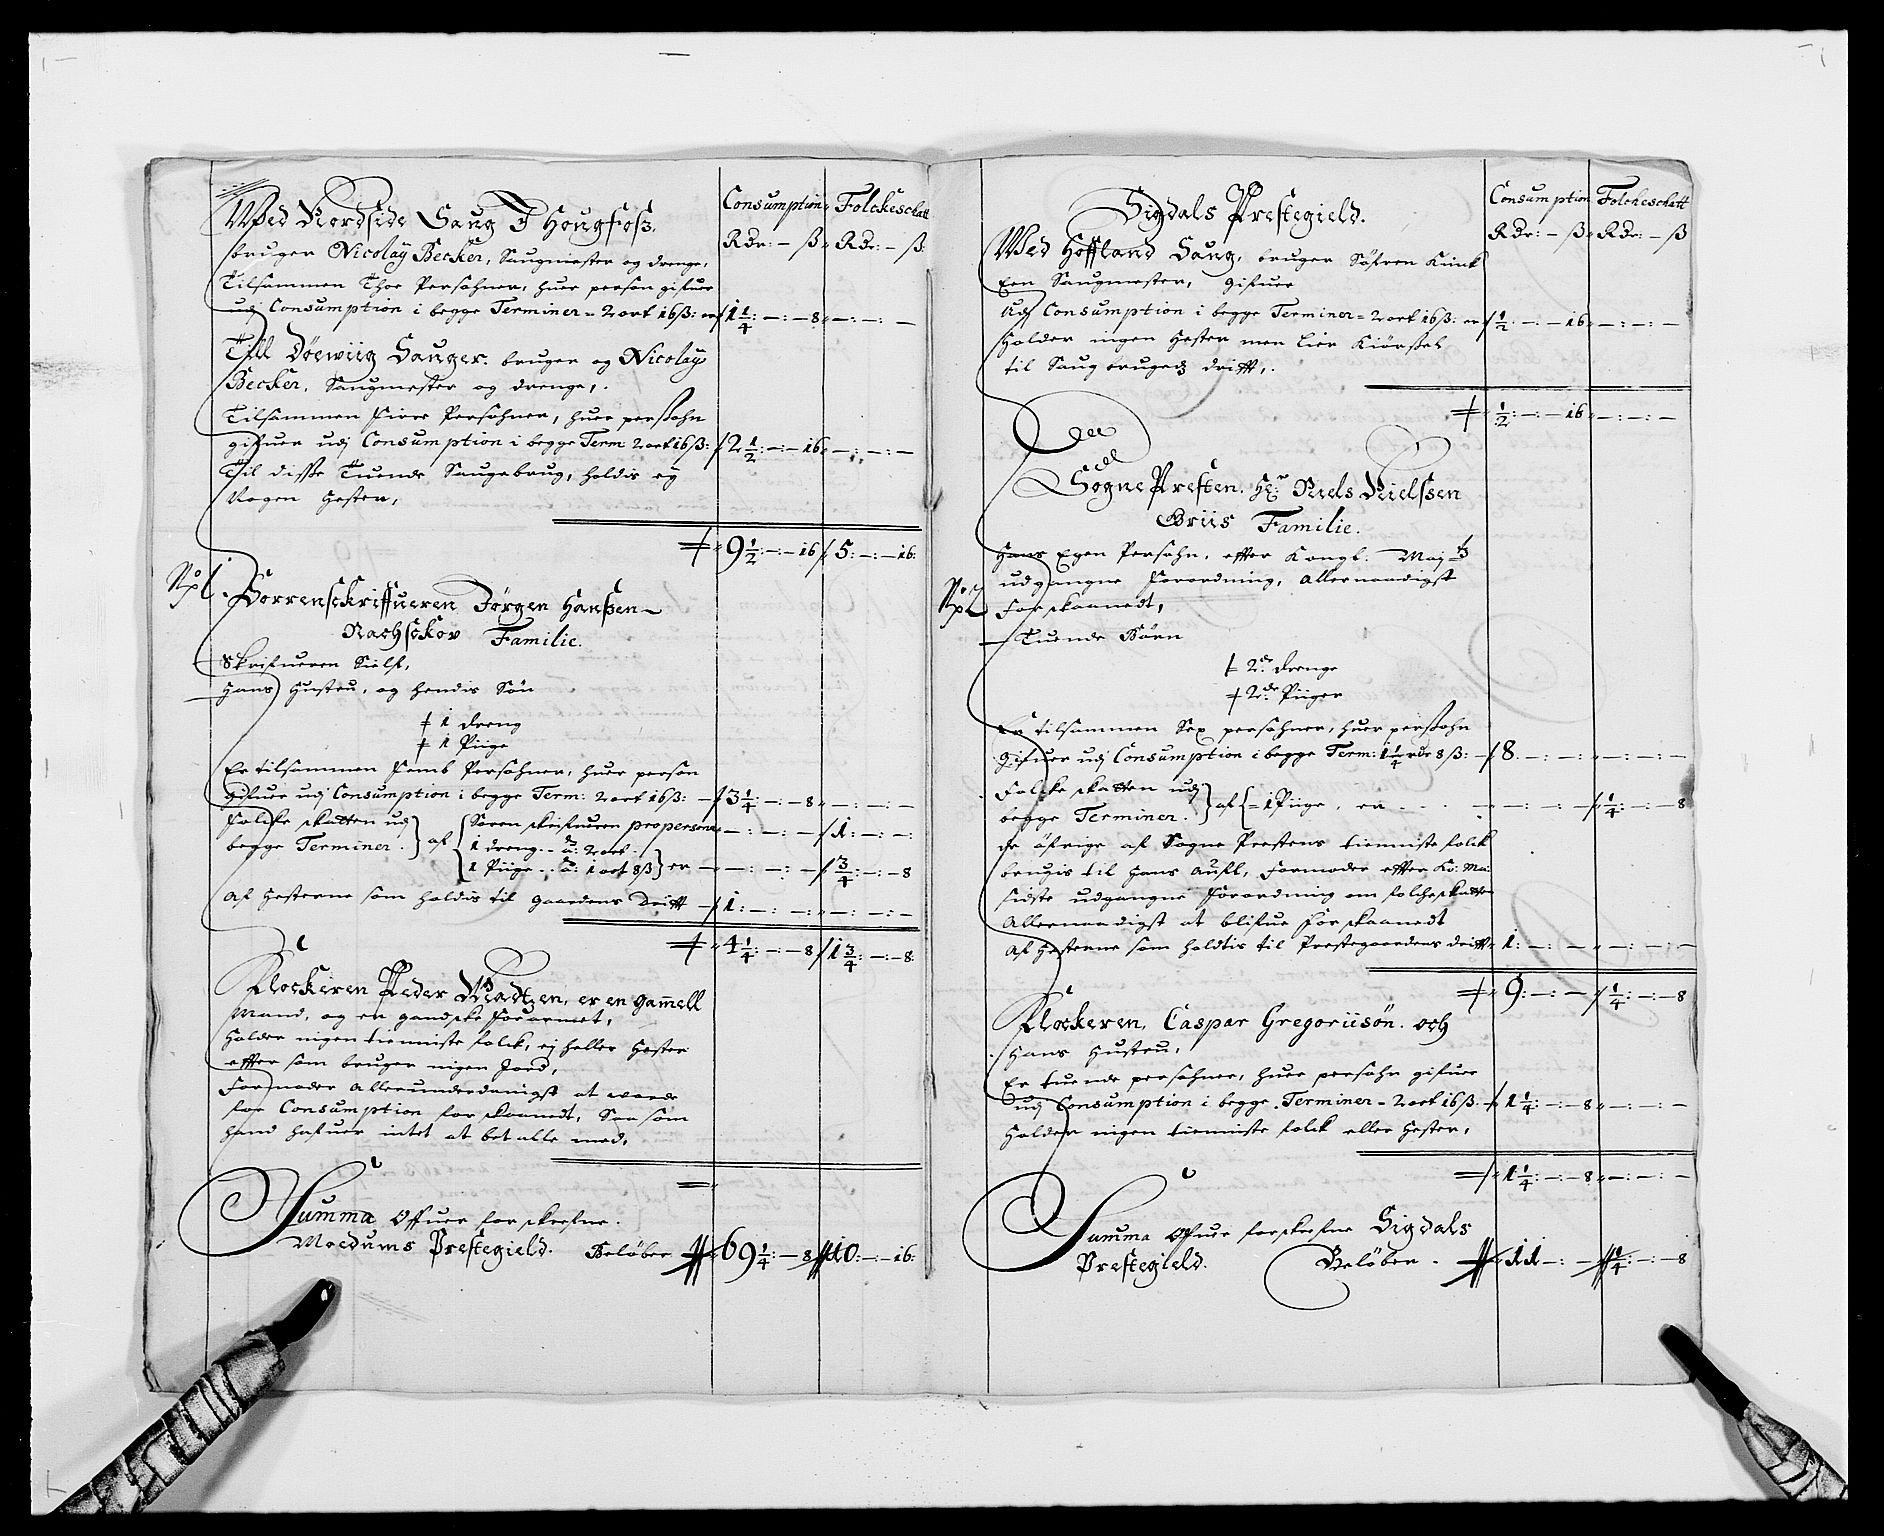 Consumption Folckeschatt
Rdr: – ß Rdr: – ß
Wed Nordside Saug I Hougfosz,
bruger Nicolay Becker, Saugmester og drenge,
Tilsammen Thoe Persohner, huer person gifuer
udj Consumption i begge Terminer – 2 ort 16 ß: er 1 1/4: –: – 8 –: –: –
Till Döewiig Sauger. bruger og Nicolay
Becker, Saugmester og drenge,
Tilsammen Fiire Persohner, huer perssohn
gifuer udj Consumption i begge Term: 2 ort 16 ß: 2 1/2: –: – 16 –: –: –
Til disse Tuende Saugebrug, holdis ey
Nogen Hester,
9 1/2: –: – 16 5: –: – 16:
Sorrenschriffueren Jörgen Hanssen
Nachschov Familie.
Skrifueren Sielf,
Hans Hustru, og hendis Sön
1 dreng
1 Piige
Er tilsammen Femb Persohner, huer person
gifuer udj Consumption i begge Term: 2 ort 16 ß: 3 1/4: –: – 8 –: –: –
Folcke skatten udj begge Terminer. af Soren skrifueren pro persona –: –: – 1: –: –
1 dreng – 2 ort
1 Piige – 1 ort 8 ß er –: –: – 3/4: –: – 8
Af Hesterne som holdis til gaardens Drifft 1: –: – –: –: –
4 1/4: –: – 8 1 3/4: –: – 8
Klockeren Peder Madtzen, er en gammell
Mand, og en gandske forarmet,
Holder ingen tienniste folck, ej heller Hester
effter som bruger ingen Jord,
Formoder allerunderdanigst at worde
for Consumption forskaanedt, Saasom
hand hafuer intet at betalle med,
Summa Offuer forskrefne.
Modums Prestegield. Belöber 69 1/4: – 8 10: –: – 16:
Sigdals Prestegield.
Consumption Folckeschatt
Rdr: – ß Rdr: – ß
Wed Hoffland Saug, bruger Söfren
Een Saugmester, gifuer
Udj Consumption i begge Terminer – 2 ort 16 ß: er 1/2: –: – 16 –: –: –
Holder ingen Hester men leier Kiörssel
til Saug brugedz drifft,
1/2: –: – 16 –: –: –
Sogne Presten. Hr: Niels Nielssen
Briis Familie.
Hans Egen Persohn, effter Kongl. Maj:tz
udgangne Forordning, allernaadigst
forskaanedt,
Tuende Börn
2de drenge
2de Piiger
Er tilsammen Sex persohner, huer perssohn
gifuer udj Consumption i begge Term: 1 1/4 rdr 8 ß: 8: –: – –: –: –
Folcke skatten udj begge Terminer. af 1 Piige, er –: –: – 1/4: –: – 8
de öfrige af Sogne Prestens tienniste folck
brugis til hans aufl, formoder effter Ko: Ma:
sidste udgangne Forordning om folcheskatten
Allernaadigst at blifue forskaanedt
Af Hesterne som holdtis til Prestegaardens drifft 1: –: – –: –: –
9: –: – 1/4: –: – 8
Klockeren, Caspar Gregoriisön. och
Hans Hustru,
Er tuende persohner, huer persohn gifuer
udj Consumption i begge Terminer – 2 ort 16 ß. 1 1/4: –: – 8 –: –: –
Holder ingen tienniste folck eller Hester,
1 1/4: –: – 8 –: –: –
Summa Ofuer forskrefne Sigdals
Prestegield. Belöber. 11 –: – 1/4: –: – 8